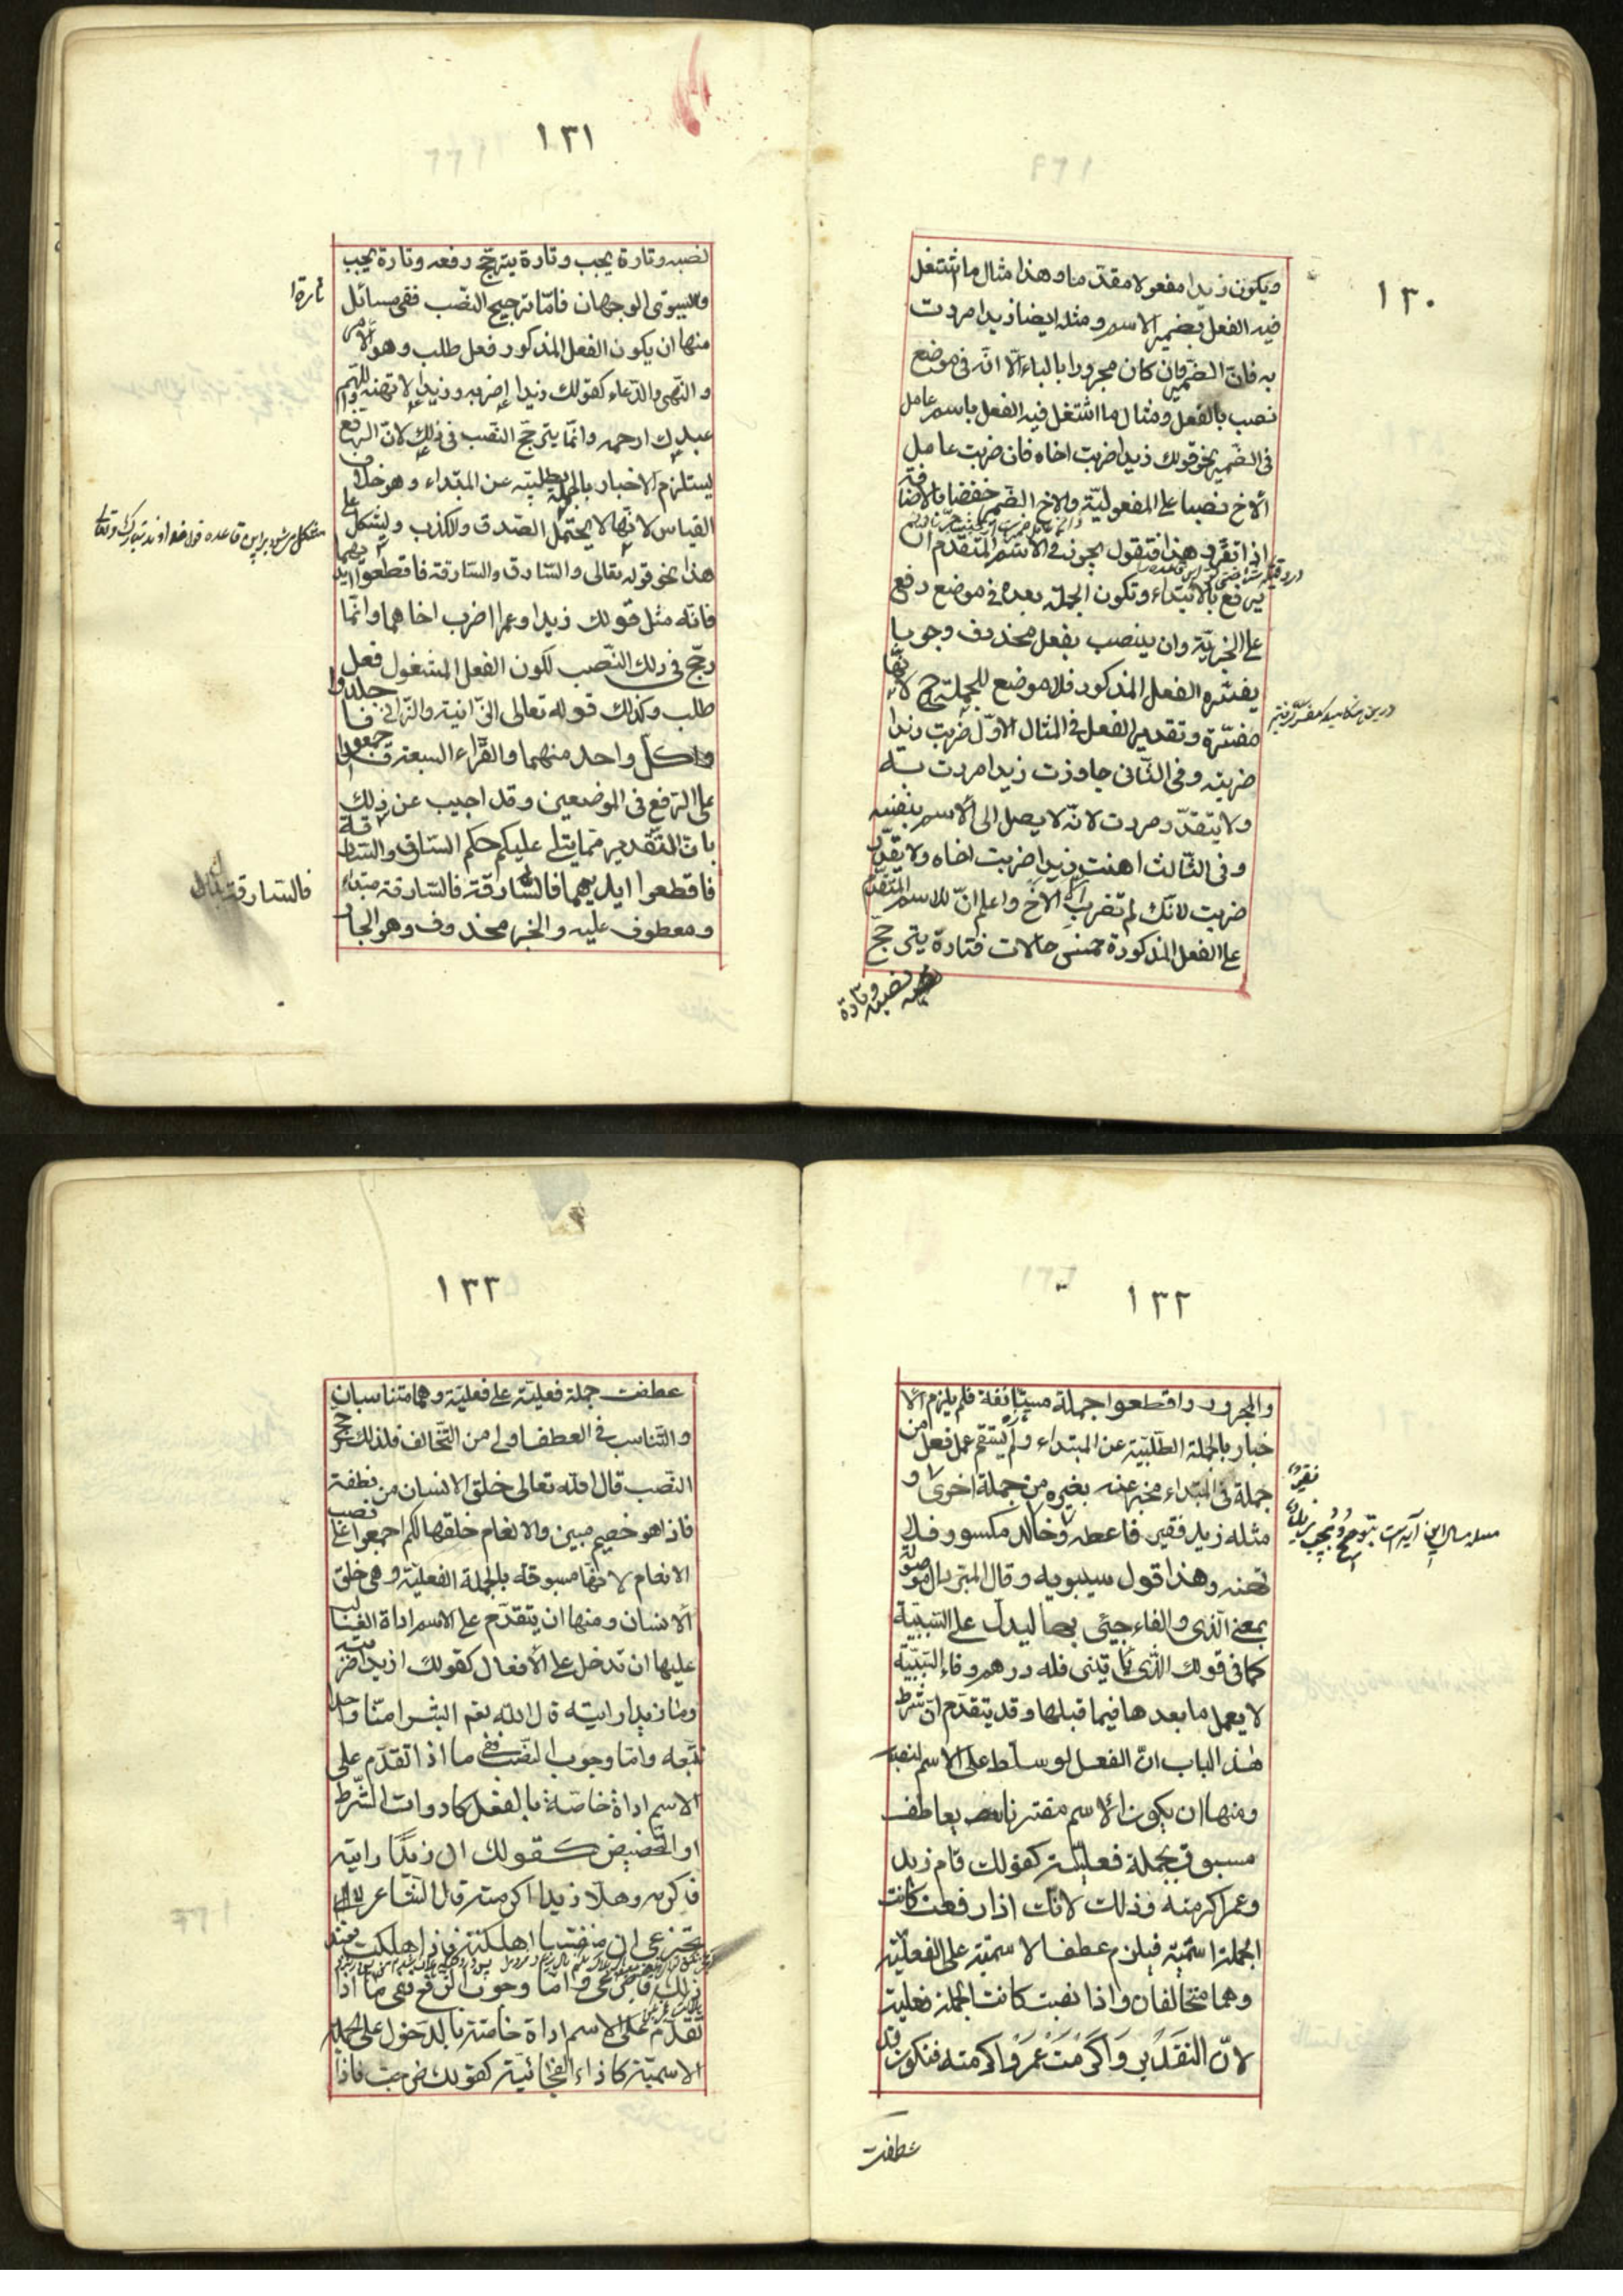 ١٣٠
ويكون زيدا مفعولا مقدما وهذا مثال ما اشتغل
فيه الفعل بضمير الاسم ومثله ايضا زيدا مررت
به فان الضمير وان كان مجرورا بالباء الّا انّه في موضع
نصب بالفعل ومثال ما اشتغل فيه الفعل باسم عامل
في الضمير نحو قولك زيدا ضربت اخاه فان ضربت عامل
الاخ نصبا على المفعوليّة والاخ الضمير خفضا بالاضافة
اذا تقرّر هذا فنقول يجوز في الاسم المتقدم ان
يرفع بالابتداء وتكون الجملة بعده في موضع رفع
على الخبريّة وان ينصب بفعل محذوف وجوبا
يفسّره الفعل المذكور فلا موضع للجملة ح لانّها
مفسّرة وتقدير الفعل في المثال الاوّل ضربت زيدا
ضربته وفي الثاني جاوزت زيدا مررت به
ولا يتقدّر مررت لانّه لا يصل الى الاسم بنفسه
وفي الثالث اهنت زيدا ضربت اخاه ولا يقدّر
ضربت لانّك لم تضرب الّا الاخ واعلم انّ للاسم المتقدّم
على الفعل المذكورة خمس حالات فتارة يترجّح
نصبه وتارة
١٣١
نصبه وتارة يجب وتارة يترجّح رفعه وتارة يجب
تارة
ويستوى الوجهان فامّا ترجيح النصب ففي مسائل
منها ان يكون الفعل المذكور فعل طلب وهو الامر
والنهي والدّعاء كقولك زيدا اضربه وزيدا لا تهنه واللهم
عبدك ارحمه وانّما يترجّح النصب في ذلك لانّ الرفع
يستلزم الاخبار بالجملة الطلبيّة عن المبتداء وهو خلاف
القياس لانّها لا يحتمل الصدق والكذب ويشكل على
هذا نحو قوله تعالى والسّارق والسّارقة فاقطعوا ايديهما
فانّه مثل قولك زيدا وعمرا اضرب اخاهما وانّما
رجّح في ذلك النّصب لكون الفعل المشغول فعل
طلب وكذلك قوله تعالى الزّانية والزّاني فاجلدوا
كلّ واحد منهما والقرّاء السبعة قد اجمعوا
على الرّفع في الموضعين وقد اجيب عن ذلك
بانّ التّقدير ممّا يتلى عليكم حكم السّارق والسّارقة
فاقطعوا ايديهما فالسّارق فالسّارقة مبتداء
فالسّارقة
ومعطوف عليه والخبر محذوف وهو الجار
١٣٢
والمجرور واقطعوا جملة مستأنفة فلم يلزم الا
خبار بالجملة الطّلبيّة عن المبتداء ولم يستقم عمل فعل من
جملة في المبتداء مخبر عنه بغيره من جملة اخرى و
مثله زيد فقير فاعطه وخالد مكسور فلا
تهنه وهذا قول سيبويه وقال المبرّد ال موصولة
بمعنى الّذى والفاء جئى بها ليدلّ على السّببيّة
كما في قولك الّذى ياتيني فله درهم وفاء السّببيّة
لا يعمل ما بعدها فيما قبلها وقد يتقدّم انّ شرط
هذا الباب انّ الفعل لو سلّط على الاسم لنصبه
ومنها ان يكون الاسم مقترنا بعاطف
مسبوق بجملة فعليّة كقولك قام زيد
وعمرا اكرمته وذلك لانّك اذا رفعت كانت
الجملة اسميّة فيلزم عطف الاسميّة على الفعليّة
وهما متخالفان واذا نصبت كانت الجملة فعلية
لانّ التقدير واكرمت عمروا اكرمته فتكون قد
عطفت
١٣٣
عطفت جملة فعليّة على فعليّة وهما متناسبان
والتّناسب في العطف اولى من التّخالف فلذلك رجّح
النّصب قال الله تعالى خلق الانسان من نطفة
فاذا هو خصيم مبين والانعام خلقها لكم اجمعوا على نصب
الانعام لانّها مسبوقة بالجملة الفعليّة وهي خلق
الانسان ومنها ان يتقدّم على الاسم اداة الغالب
عليها ان تدخل على الافعال كقولك ازيدا ضربته
وما زيدا رايته قال الله نعم ابشرا منّا واحدا
نتّبعه وامّا وجوب النّصب ففي ما اذا تقدّم على
الاسم اداة خاصّة بالفعل كادوات الشّرط
او التّحضيض كقولك ان زيدًا رايته
فاكرمه وهلّا زيدا اكرمته قال الشّاعر لا
تجزعي ان منفسا اهلكته فاذا هلكت فعند
ذلك فاجزعي وامّا وجوب الرّفع ففي ما اذا
تقدّم على الاسم اداة خاصّة بالدخول على الجملة
الاسميّة كاذاء الفجائيّة كقولك خرجت فاذا